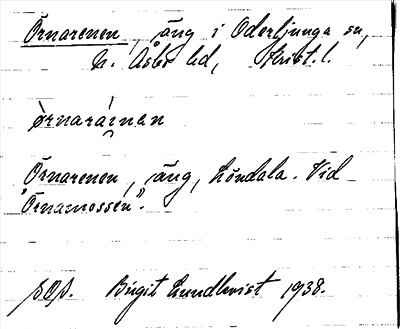 Örnarenen, äng i Oderljunga sn,
N. Åsbo hd, Krist. l.
ö̀rnaráinan
Örnarenen, äng, Löndala. Vid
"Örnamossen".
SOJ. Birgit Lundkvist 1938.